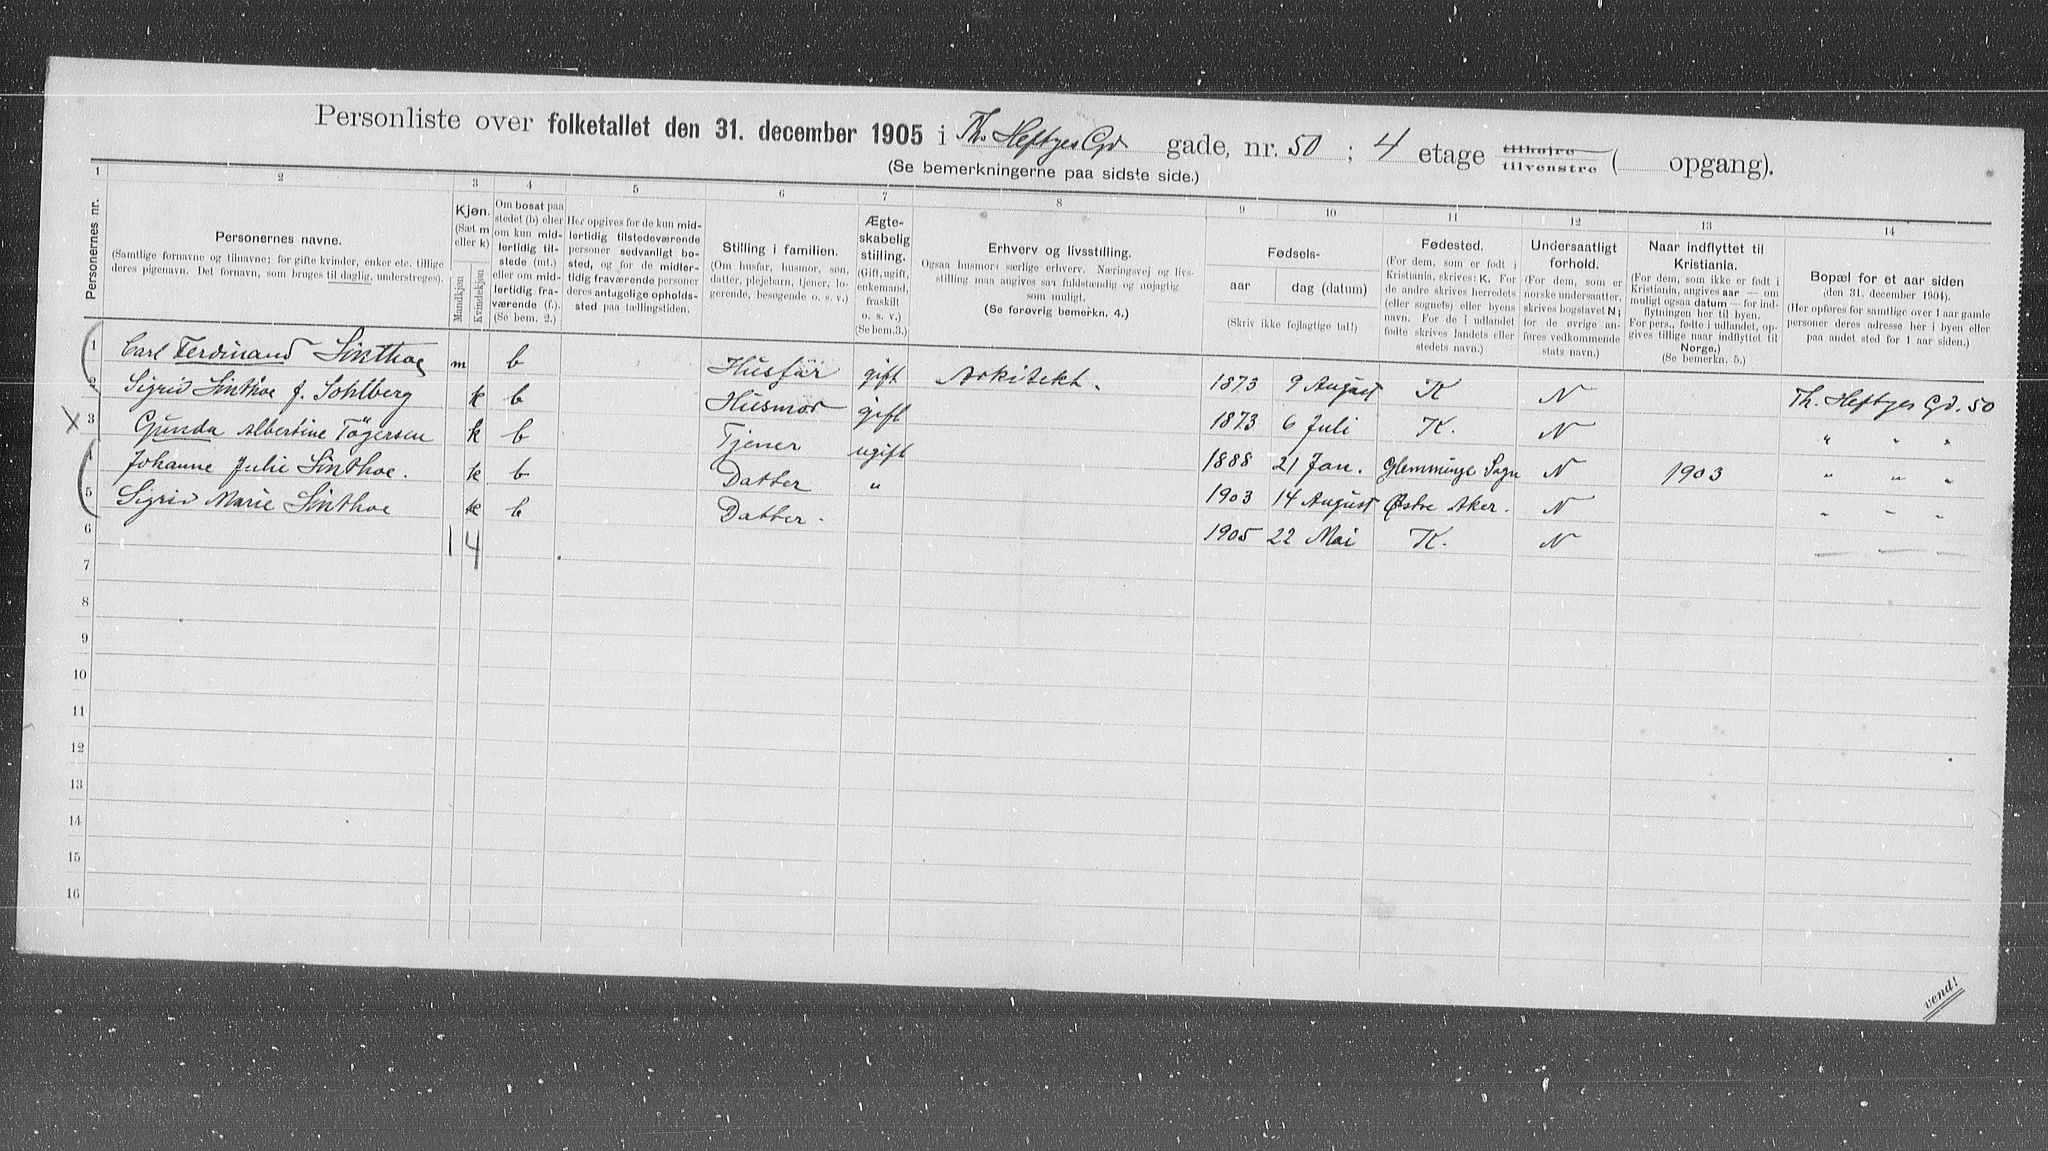 Personliste over folketallet den 31. december 1905 i Th. Heftyes Gd. gade, nr. 50 ; 4 etage tilhøjre tilvenstre ( opgang).
(Se bemerkningerne paa sidste side.)
1 2 3 4 5 6 7 8 9 10 11 12 13 14
Personernes nr.
Personernes navne.
(Samtlige fornavne og tilnavne; for gifte kvinder, enker etc. tillige
deres pigenavn. Det fornavn, som bruges til daglig, understreges).
Kjøn.
(Sæt m
eller k)
Mandkjøn
Kvindekjøn
Om bosat paa
stedet (b) eller
om kun mid-
lertidig til-
stede (mt.)
eller om mid-
lertidig fra-
værende (f.).
(Se bem. 2.)
Her opgives for de kun mid-
lertidig tilstedeværende
personer sedvanligt bo-
sted, og for de midler-
tidig fraværende personer
deres antagelige opholds-
sted paa tællingstiden.
Stilling i familien.
(Om husfar, husmor, søn,
datter, plejebarn, tjener, lo-
gerende, besøgende o. s. v.)
Ægte-
skabelig
stilling.
(Gift, ugift,
enkemand,
fraskilt
o. s. v.)
(Se bem.3.)
Erhverv og livsstilling.
Ogsaa husmors særlige erhverv. Næringsvej og livs-
stilling maa angives saa fuldstændig og nøjagtig
som muligt.
(Se forøvrig bemerkn. 4.)
Fødsels-
aar
dag (datum)
(Skriv ikke fejlagtige tal!)
Fødested.
(For dem, som er født i
Kristiania, skrives: K. For
de andre skrives herredets
(eller sognets) eller byens
navn. For de i udlandet
fødte skrives landets eller
stedets navn.)
Undersaatligt
forhold.
(For dem, som er
norske undersaatter,
skrives bogstavet N;
for de øvrige an-
føres vedkommende
stats navn.)
Naar indflyttet til
Kristiania.
(For dem, som ikke er født i
Kristiania, angives aar — om
muligt ogsaa datum — for ind-
flytningen her til byen.
For pers., fødte i udlandet, op-
gives tillige naar indflyttet til
Norge.)
(Se bemerkn. 5.)
Bopæl for et aar siden
(den 31. december 1904).
(Her opføres for samtlige over 1 aar gamle
personer deres adresse her i byen eller
paa andet sted for 1 aar siden.)
1 Carl Ferdinand Sinthoe m b Husfar gift Arkitekt. 1873 9 August K N Th. Heftyes Gd. 50
2 Sigrid Sinthoe f. Sohlberg k b Husmor gift 1873 6 Juli K. N " " "
X 3 Gunda Albertine Tögersen k b Tjener ugift 1888 21 Jan. Glemminge Sogn N 1903 " " "
4 Johanne Julie Sinthoe. k b Datter " 1903 14 August Østre Aker. N " " "
5 Sigrid Marie Sinthoe k b Datter. 1905 22 Mai K. N — — —
6 1 4
7
8
9
10
11
12
13
14
15
16
vend!